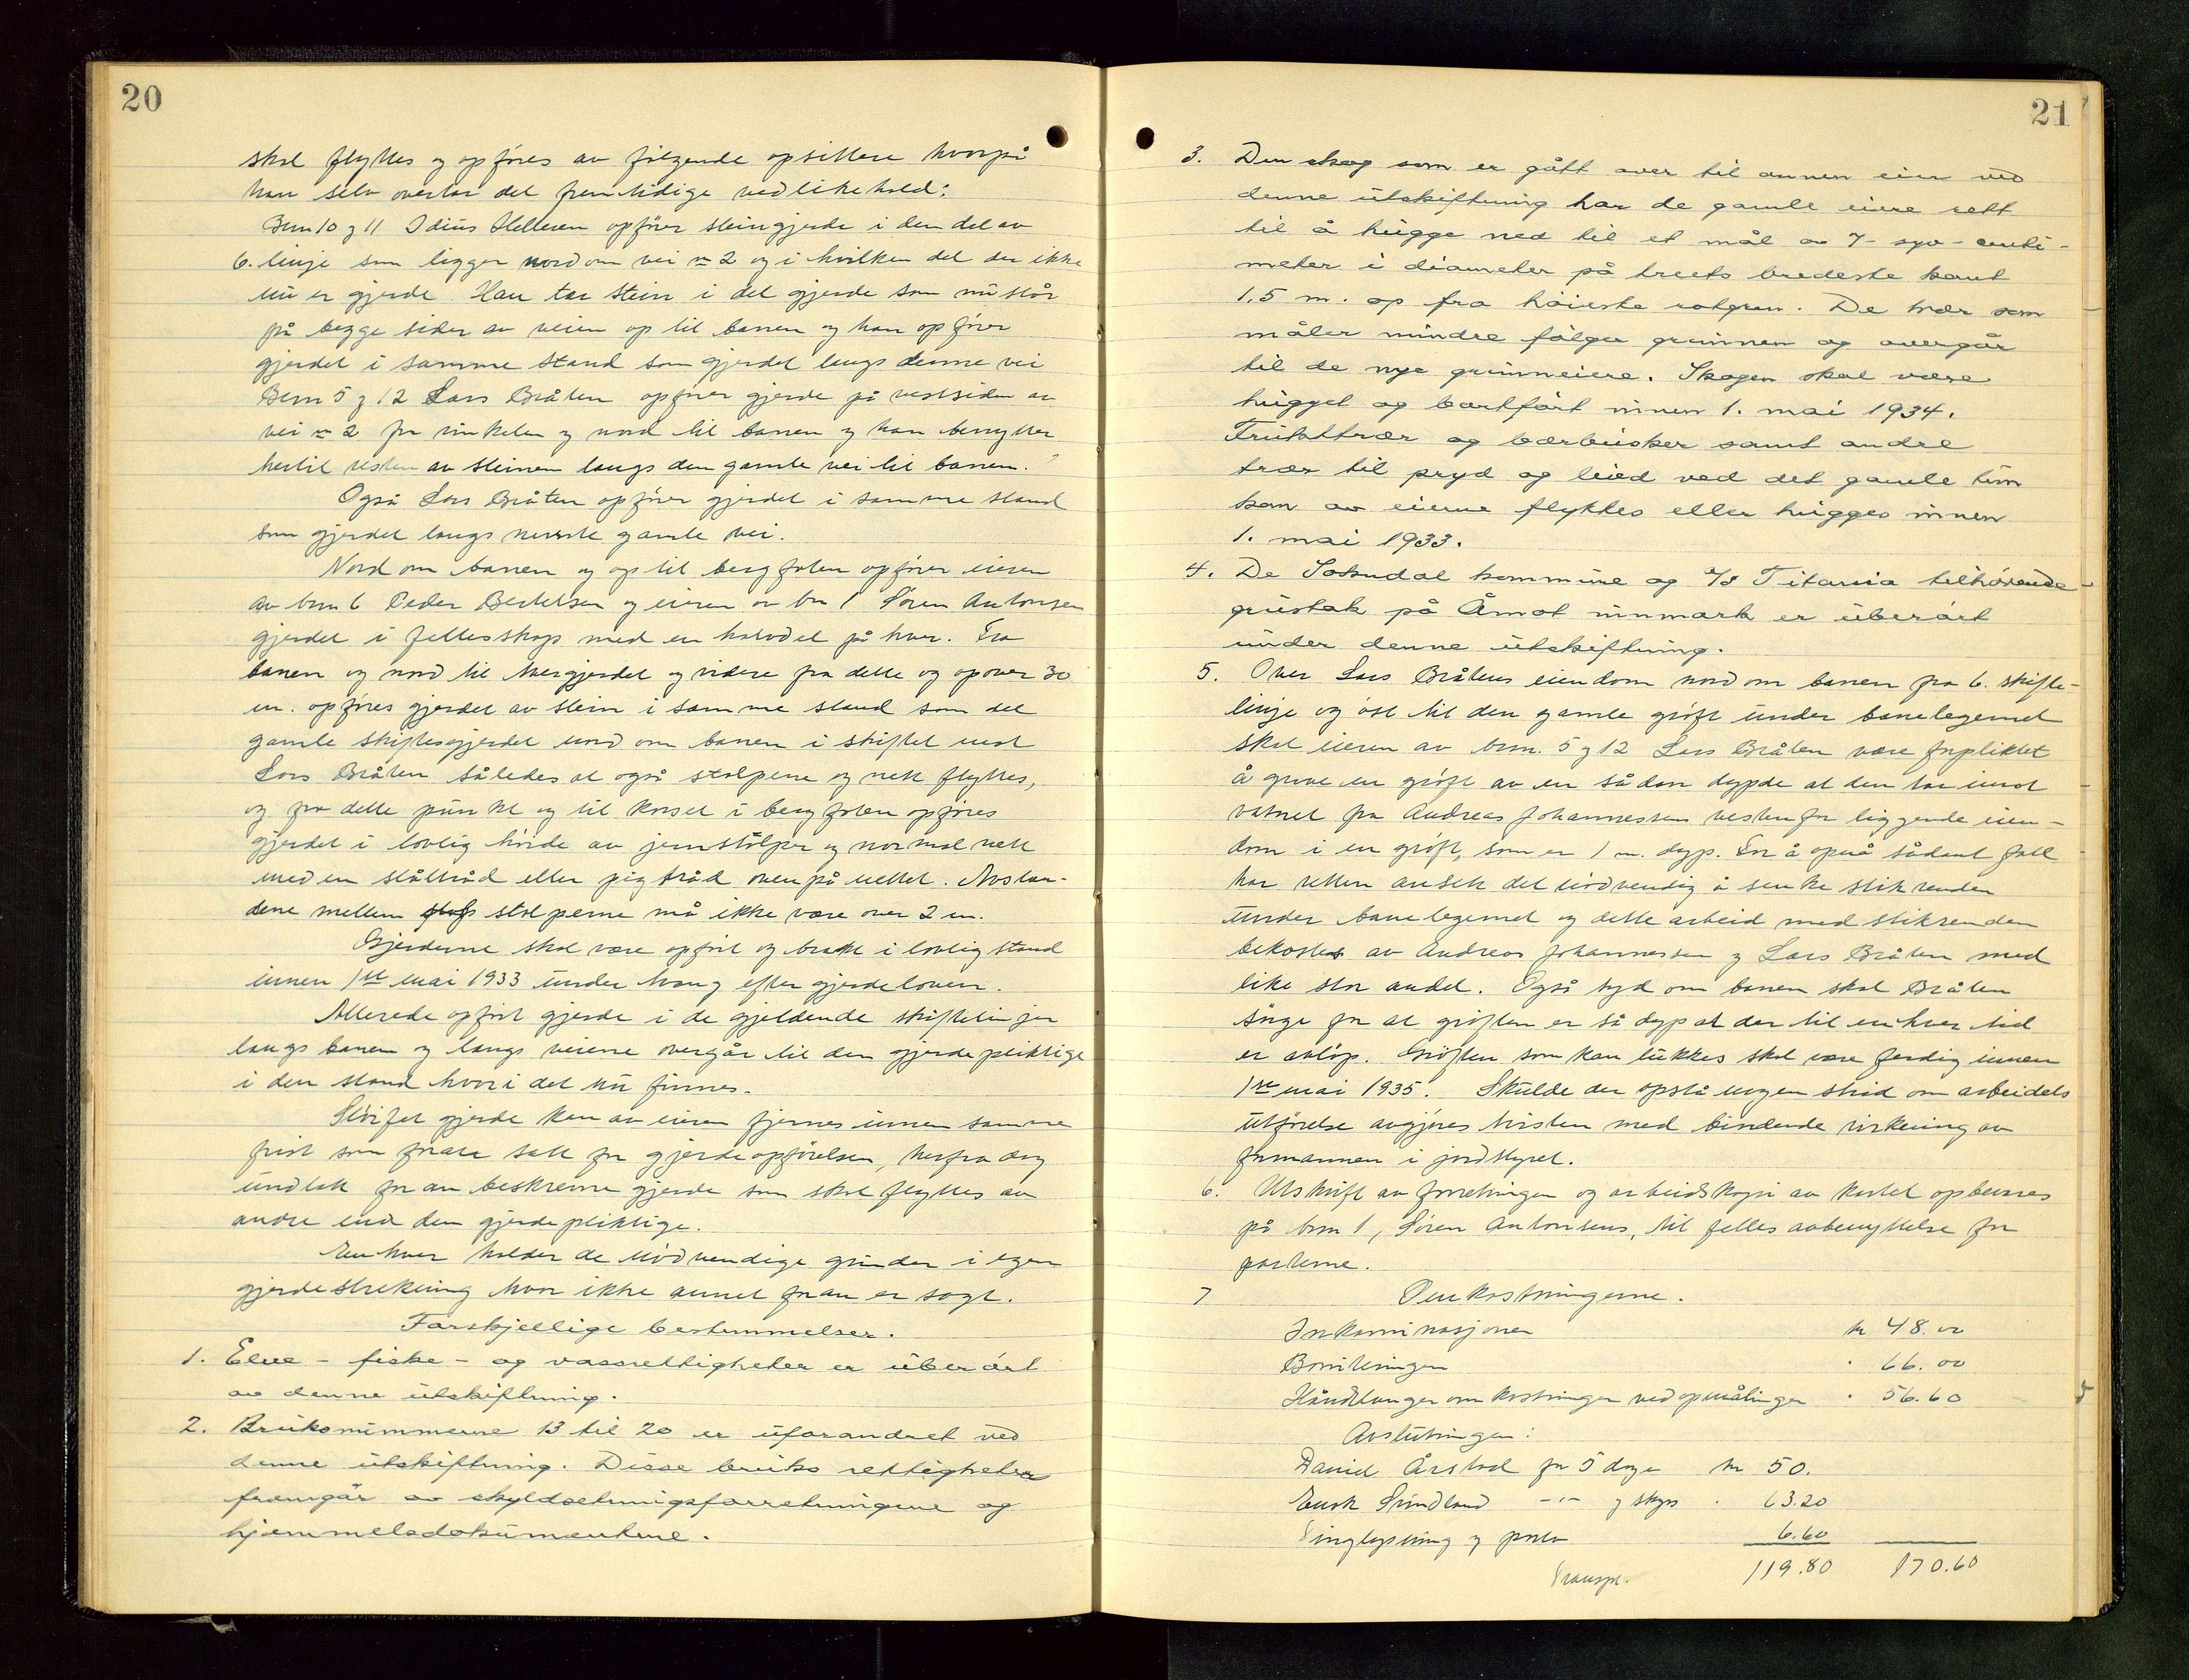 20
skal flyttes og opføres av følgende opsittere hvorpå
han selv overtar det fremtidige vedlikehold:
Brn 10 og 11 Idius Helleren opfører steingjerde i den del av
6. linje som ligger nord om vei № 2 og i hvilken del der ikke
nu er gjerde. Han tar stein i det gjerde som nu står
på begge sider av veien op til banen og han opfører
gjerdet i samme stand som gjerdet langs denne vei
Brn 5 og 12 Lars Bråten opfører gjerde på vestsiden av
vei № 2 fra vinkelen og nord til banen og han benytter
hertil resten av steinen langs den gamle vei til banen.
Også Lars Bråten opfører gjerdet i samme stand
som gjerdet langs nevnte gamle vei.
Nord om banen og op til bergfoten opfører eieren
av brn 6 Peder Bertelsen og eieren av bn 1 Søren Antonsen
gjerdet i fellesskap med en halvdel på hver. Fra
banen og nord til tvergjerdet og videre fra dette og opover 30
m. opføres gjerdet av stein i samme stand som det
gamle skiftesgjerdet nord om banen i skiftet mot
Lars Bråten således at også stolpene og nett flyttes,
og fra dette punkt og til korset i bergfoten opføres
gjerdet i lovlig høide av jernstolper og normal nett
med en ståltråd eller pigtråd oven på nettet. Avstan-
dene mellem stolperne må ikke være over 2 m.
Gjerderne skal være opført og bragt i lovlig stand
innen 1ste mai 1933 under tvang efter gjerdeloven.
Allerede opført gjerde i de gjeldende skiftelinjer
langs banen og langs veiene overgår til den gjerdepliktige
i den stand hvori det nu finnes.
Sløifet gjerde kan av eieren fjernes innen samme
frist som foran satt for gjerdeopførelsen, herfra dog
undtatt foran beskrevne gjerde som skal flyttes av
andre enn den gjerdepliktige.
Enhver holder de nødvendige grinder i egen
gjerdestrekning hvor ikke annet foran er sagt.
Forskjellige bestemmelser.
1. Elve- fiske- og vassrettigheter er uberørt
av denne utskiftning.
2. Bruksnummerne 13 til 20 er uforandret ved
denne utskiftning. Disse bruks rettigheter
fremgår av skyldsetningsforretningene og
hjemmelsdokumentene.
21
3. Den skog som er gått over til annen eier ved
denne utskiftning har de gamle eiere rett
til å hugge ned til et mål av 7- syv - centi-
meter i diameter på treets bredeste kant
1,5 m. op fra høieste rotgren. De trær som
måler mindre følger grunnen og overgår
til de nye grunneiere. Skogen skal være
hugget og bortført innen 1. mai 1934.
Frukttrær og bærbusker samt andre
trær til pryd og livd ved det gamle tun
kan av eierne flyttes eller hugges innen
1. mai 1933.
4. De Sokndal kommune og A/S Titania tilhørende
grustak på Åmot innmark er uberørt
under denne utskiftning.
5. Over Lars Bråtens eiendom nord om banen fra 6. skifte-
linje og øst til den gamle grøft under banelegemet
skal eieren av brn. 5 og 12 Lars Bråten være forpliktet
å grave en grøft av en sådan dypde at den tar imot
vatnet fra Andreas Johannessens vestenfor liggende eien-
dom i en grøft, som er 1 m. dyp. For å opnå sådant fall
har retten ansett det nødvendig å senke stikrenden
under banelegemet og dette arbeid med stikrenden
bekostes av Andreas Johannessen og Lars Bråten med
like stor andel. Også syd om banen skal Bråten
sørge for at grøften er så dyp at der til enhver tid
er avløp. Grøften som kan lukkes skal være ferdig innen
1ste mai 1935. Skulde der opstå nogen strid om arbeidets
utførelse avgjøres tvisten med bindende virkning av
formannen i jordstyret.
6. Utskrift av forretningen og arbeidskopi av kartet opbevares
på brn 1, Søren Antonsens, til felles avbenyttelse for
parterne.
7 Omkostningerne.
Inkaminasjonen kr 48.00
Boniteringen " 66.00
Håndlangeromkostninger ved opmålingen " 56.60
Avslutningen:
Daniel Årstad for 5 dage kr 50.
Enok Svindland -"- og skyss " 63.20
Tinglysning og porto 6.60
Transp. 119.80 170.60